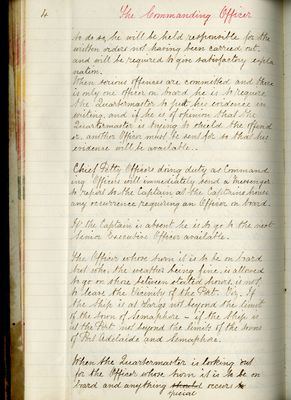 4
The Commanding Officer
to do so, he will be held responsible for the
written orders not having been carried out
and will be required to give satisfactory expla
nation.
When serious offences are committed and there
is only one officer on board he is to require
the Quartermaster to put his evidence in
writing, and if he is of opinion that the
Quartermaster is trying to shield the offend
er, another Officer must be sent for so that his
evidence will be available.
Chief Petty Officers doing duty as Command
ing Officers will immediately send a messenger
to report to the Captain at the Captain's house
any occurrence requiring an Officer on board.
If the Captain is absent he is to go to the next
Senior Executive Officer available.
The Officer whose turn it is to be on board
but who, the weather being fine, is allowed
to go on shore between stated hours is not
to leave the vicinity of the Port. Viz. If
the ship is at Largs not beyond the limit
of the town of Semaphore – if the ship is
at the Port not beyond the limits of the towns
of Port Adelaide and Semaphore.
When the Quartermaster is looking out
for the Officer whose turn it is to be on
board and anything should occurs to
special